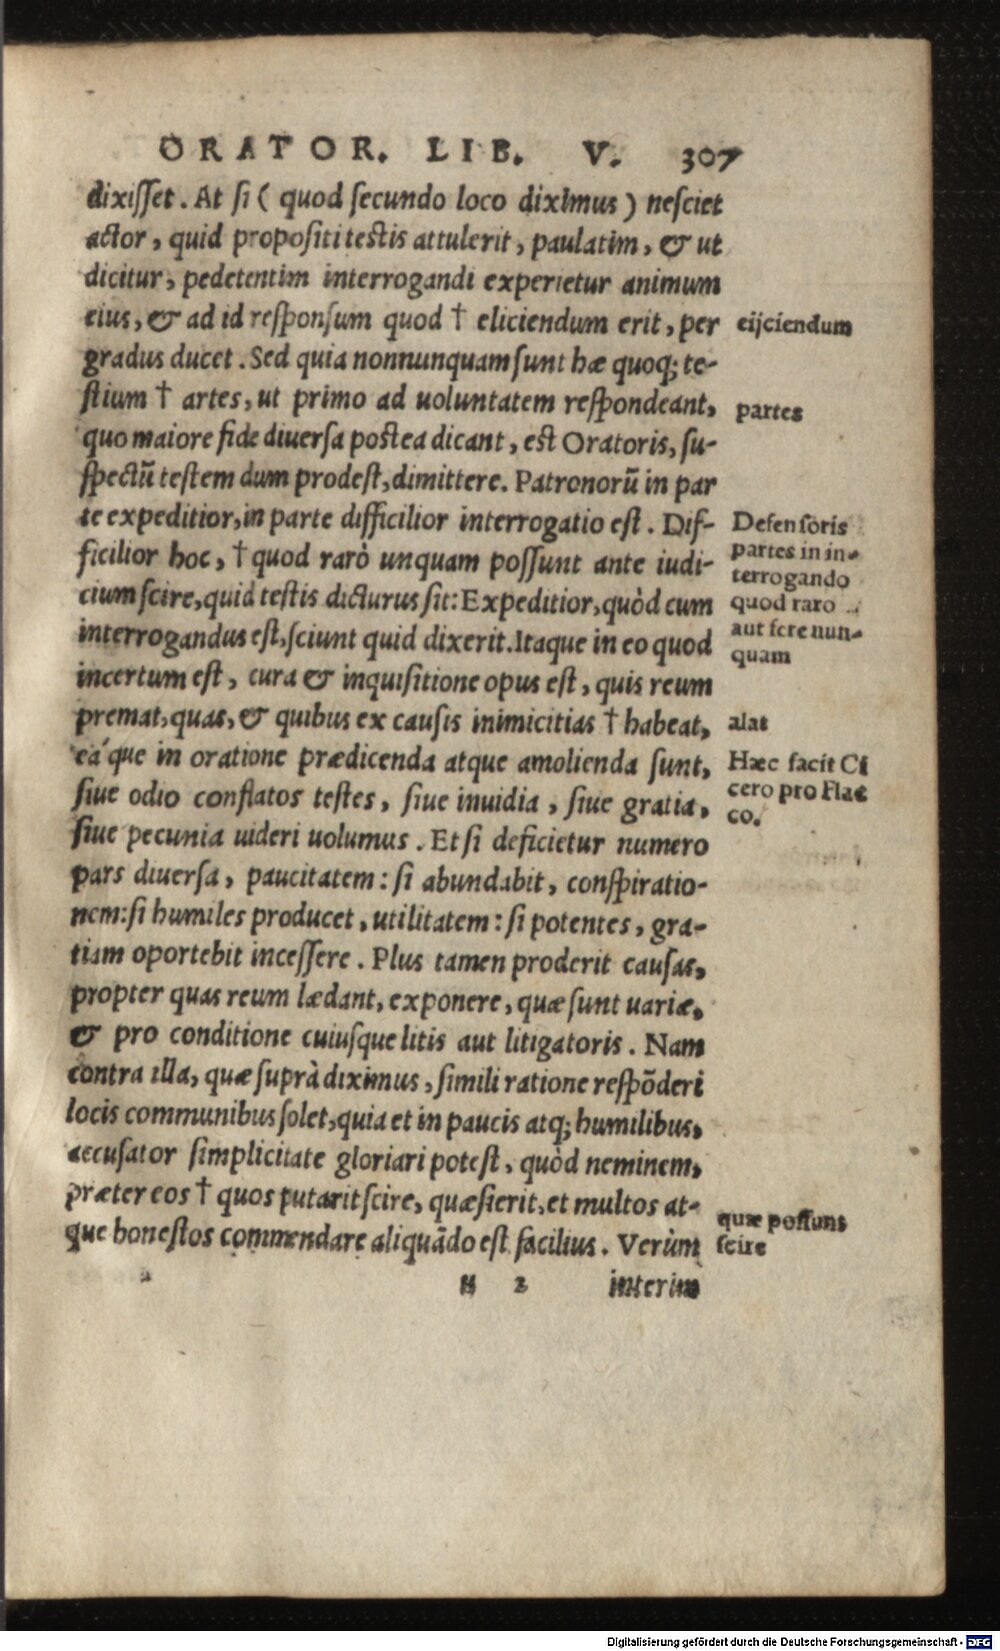 ORATOR. LIB. V. 307
dixisset. At si ( quod secundo loco diximus ) nesciet
actor, quid propositi testis attulerit, paulatim, & ut
dicitur, pedetentim interrogandi experietur animum
eius, & ad id responsum quod † eliciendum erit, per
eijciendum
gradus ducet. Sed quia nonnunquam sunt hæ quoq; te-
stium † artes, ut primo ad uoluntatem respondeant,
partes
quo maiore fide diuersa postea dicant, est Oratoris, su-
spectū testem dum prodest, dimittere. Patronorū in par
te expeditior, in parte difficilior interrogatio est. Dif-
ficilior hoc, † quod rarò unquam possunt ante iudi-
cium scire, quid testis dicturus sit: Expeditior, quòd cum
interrogandus est, sciunt quid dixerit. Itaque in eo quod
Defensoris
partes in in-
terrogando
quod raro
aut fere nun-
quam
incertum est, cura & inquisitione opus est, quis reum
premat, quas, & quibus ex causis inimicitias † habeat,
alat
eáque in oratione prædicenda atque amolienda sunt,
siue odio conflatos testes, siue inuidia, siue gratia,
Hæc facit Ci
cero pro Flac
co.
siue pecunia uideri uolumus. Et si deficietur numero
pars diuersa, paucitatem: si abundabit, conspiratio-
nem: si humiles producet, utilitatem: si potentes, gra-
tiam oportebit incessere. Plus tamen proderit causas,
propter quas reum lædant, exponere, quæ sunt uariæ,
& pro conditione cuiusque litis aut litigatoris. Nam
contra illa, quæ suprà diximus, simili ratione respōderi
locis communibus solet, quia et in paucis atq; humilibus,
accusator simplicitate gloriari potest, quòd neminem,
præter eos † quos putarit scire, quæsierit, et multos at-
que honestos commendare aliquādo est facilius. Verùm
quæ possunt
scire
N 2 interim
Digitalisierung gefördert durch die Deutsche Forschungsgemeinschaft - DFG